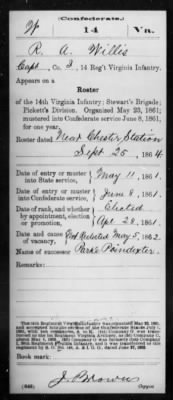 (Confederate.)
W 14 Va.
R. A. Willis
Capt, Co. I, 14 Reg't Virginia Infantry.
Appears on a
Roster
of the 14th Virginia Infantry; Stewart's Brigade;
Pickett's Division. Organized May 23, 1861;
mustered into Confederate service June 8, 1861,
for one year.
Roster dated Near Chester Station
Sept 25, 1864.
Date of entry or muster into State service, May 11, 1861.
Date of entry or muster into Confederate service, June 8, 1861.
Date of rank, and whether by appointment, election or promotion, Elected Apr 28, 1861.
Date and cause of vacancy, Not Reelected May 5, 1862
Name of successor Parke Poindexter
Remarks:
Book mark:
J. Brown
Copyist.